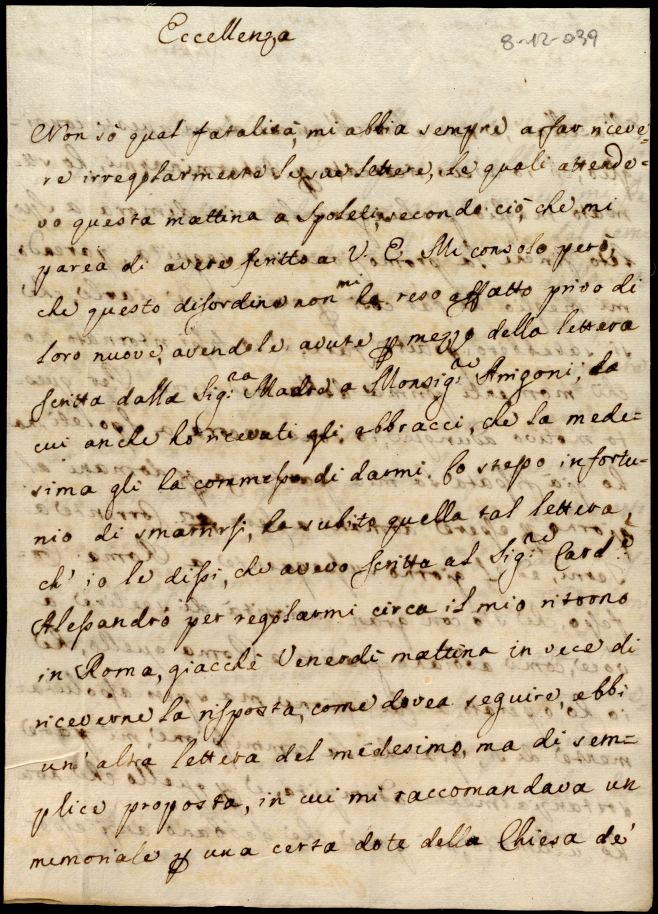 Eccellenza
8-12-039
Non sò qual fatalità, mi abbia sempre a far riceve=
re irregolarmente le sue lettere, le quali attende=
vo questa mattina a Spoleti, secondo ciò, che mi
parea di avere scritto a V. E. Mi consolo però,
che questo disordine non mi ha reso affatto privo di
loro nuove, avendole avute p mezzo della lettera
scritta dalla Sig.ra Madre a Monsig.re Arrigoni, da
cui anche hò ricevuti gli abbracci, che la mede=
sima gli ha commesso di darmi. Lo stesso infortu=
nio di smarrirsi, ha subito quella tal lettera,
ch' io le dissi, che avevo scritta al Sig.re Card.e
Alessandro per regolarmi circa il mio ritorno
in Roma, giacchè Venerdì mattina in vece di
riceverne la risposta, come dovea seguire, ebbi
un' altra lettera del medesimo, ma di sem=
plice proposta, in cui mi raccomandava un
memoriale p una certa dote della Chiesa de'